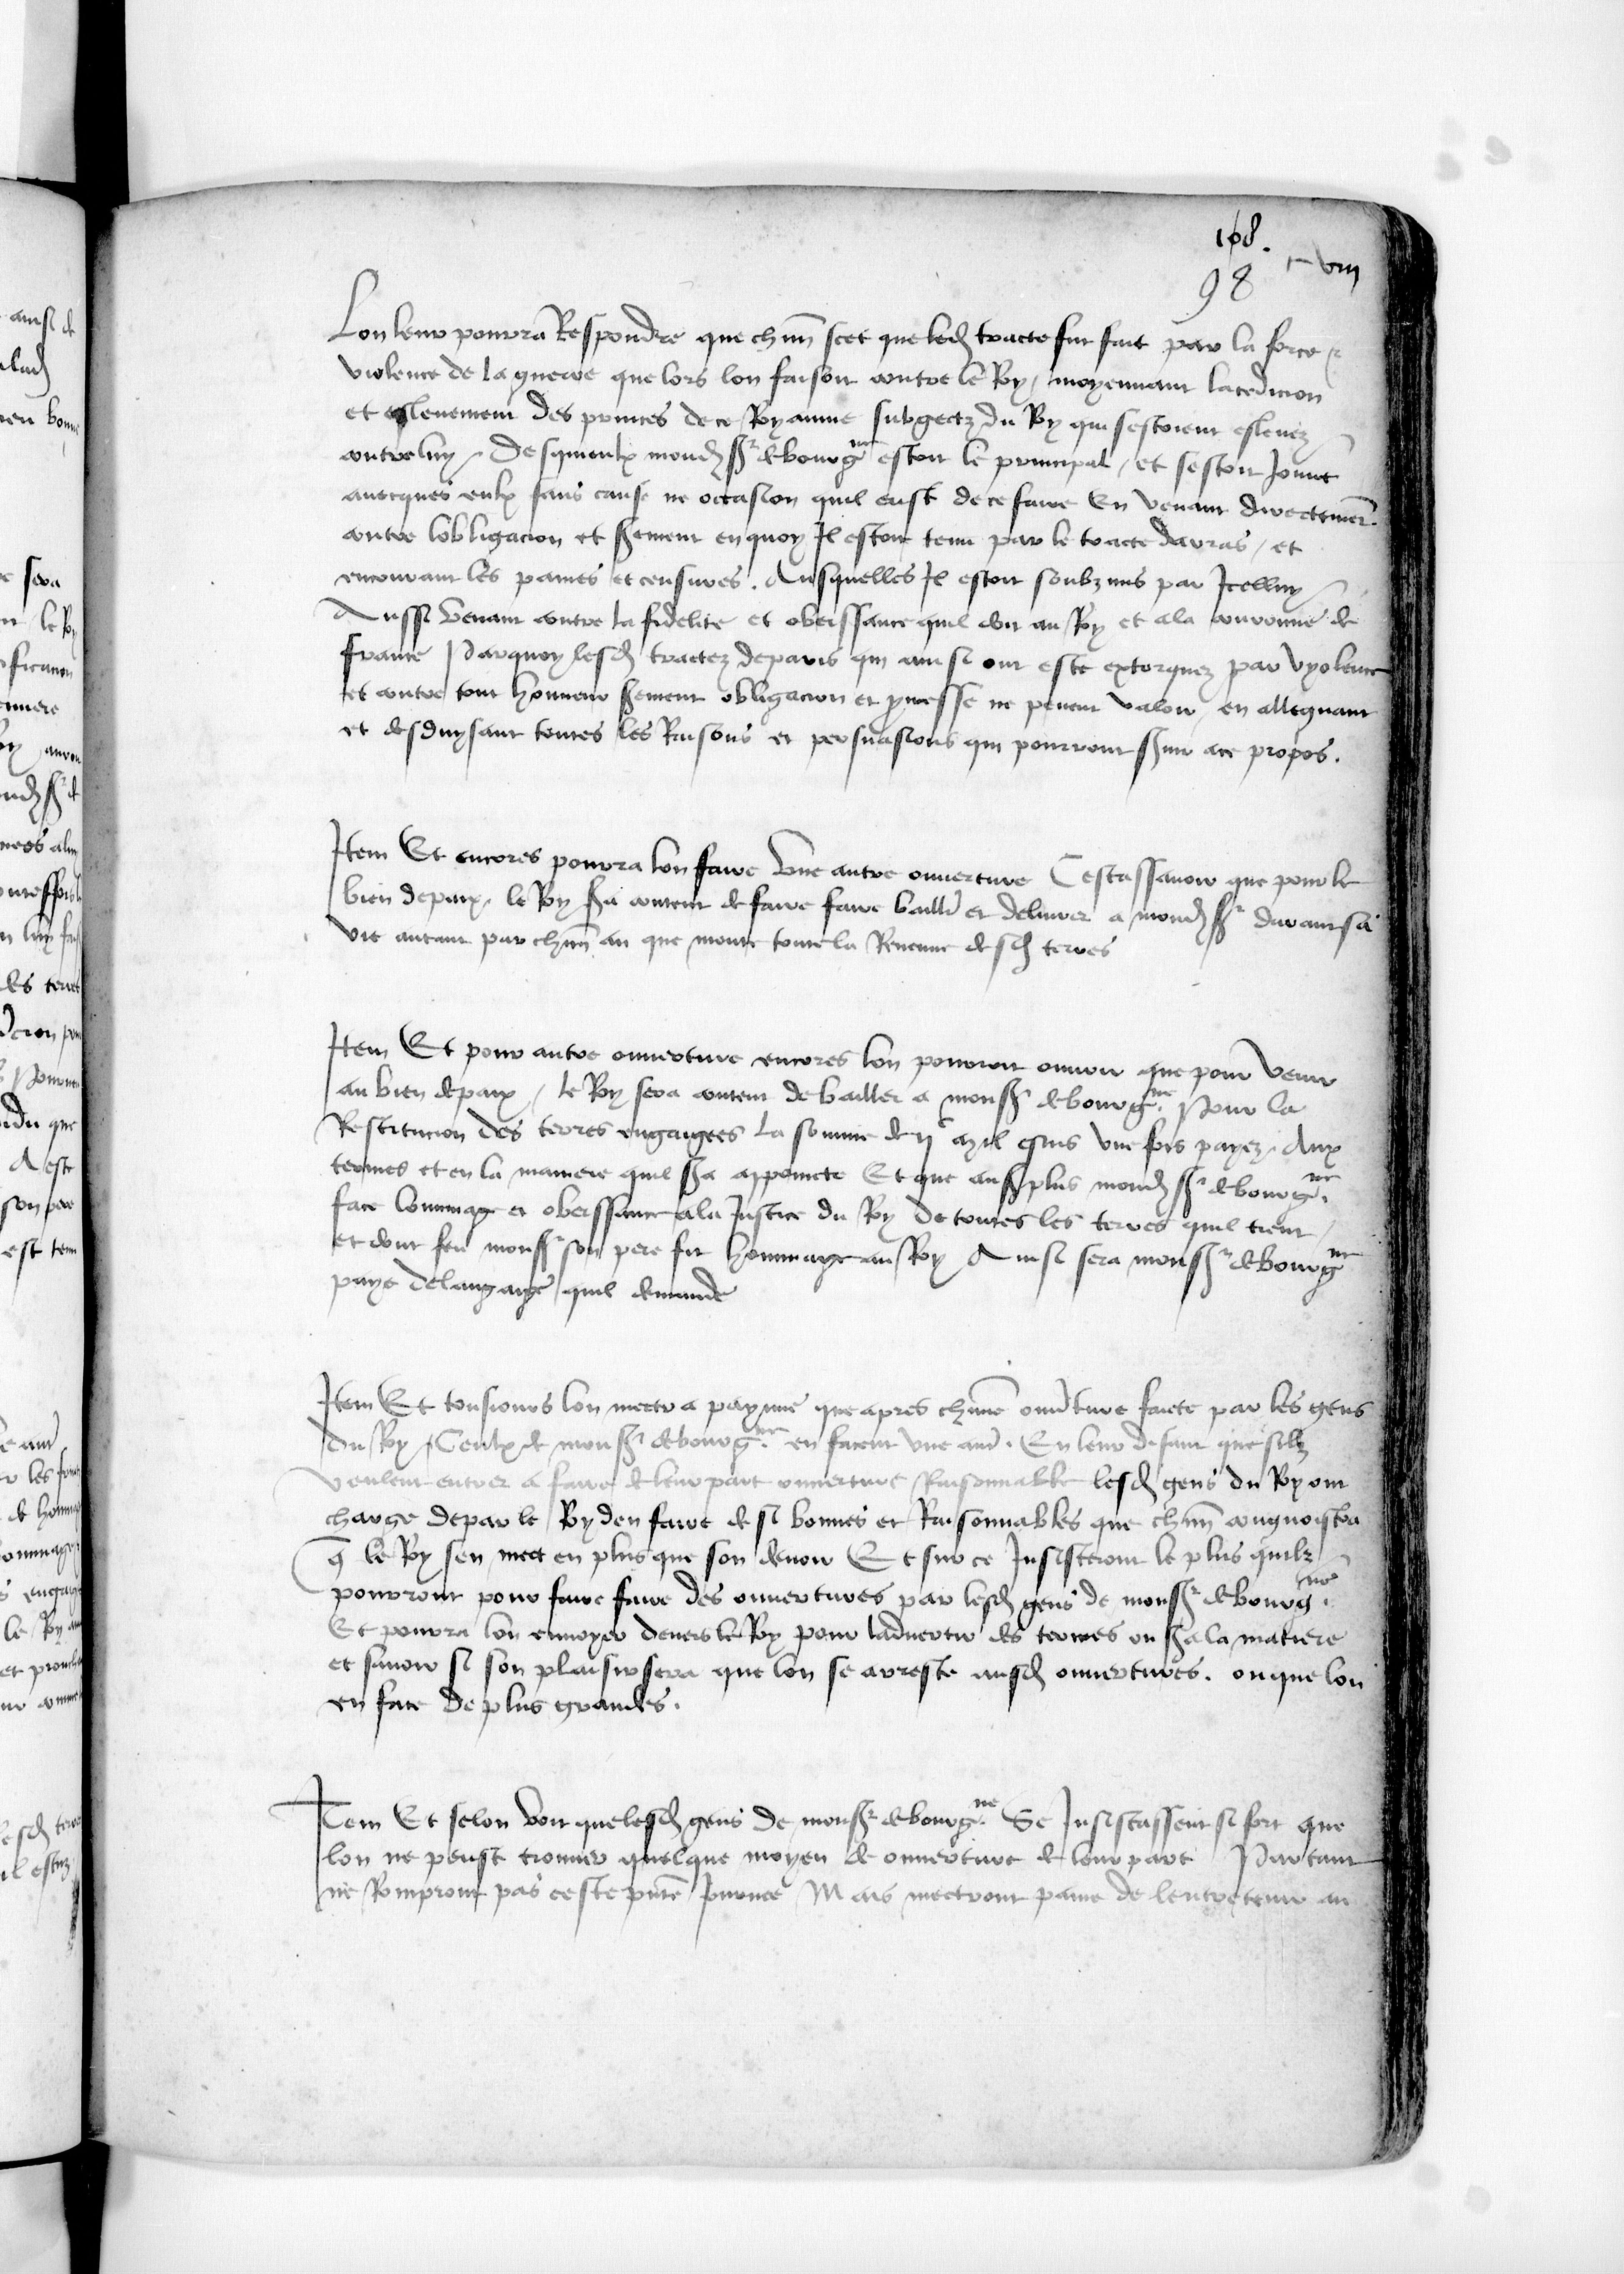 168.
98
viii
Lon leur pourra Respondre que chun scet que led traicte fut fait par la force &
violence de la guerre que lors lon faisoit contre le Roy / moyennant la sedicion
et eslevement des princes de ce Royaume subgectz du Roy qui sestoient eslevez
contre luy / Desquieulx mond sr de bourgne estoit le principal / et sestoit Joinct
avecques eulx sans cause ne occasion quil eust de ce faire En venant directement
contre lobligacion et serment en quoy Il estoit tenu par le traicte darras / et
encourant les paines et censures. Ausquelles Il estoit soubzmis par Icelluy
Aussi venant contre la fidelite et obeissance quil doit au Roy et a la couronne de
france Parquoy lesd traictez de paris qui ainsi ont este extorquez par vyolence
et contre tout honneur serment obligacion et promesse ne pevent valoir / en allegant
et desduysant toutes les Raisons et persuasions qui pourront servir a ce propos.
Item Et encores pourra lon faire Une autre ouverture Cestassavoir que pour le
bien de paix / le Roy sera content de faire faire baillr et delivrer a mond sr durant sa
vie autant par chun an que monte toute la Revenue desd terres
Item Et pour autre ouverture encores lon pourroit ouvrir que pour venir
au bien de paix / le Roy sera content de bailler a monsr de bourgne. Pour la
Restitucion des terres engaigees La somme de ijc mil escus une fois payez. Aux
termes et en la maniere quil sera appoincte Et que au surplus mond sr de bourgne.
face hommage et obeissance a la Justice du Roy De toutes les terres quil tient /
et dont feu monsr son pere fit hommage au Roy Ainsi sera monsr de bourgne
paye de langaige quil demande
Item Et tousiours lon mectra payne que apres chune ouvrture faicte par les gens
du Roy / Ceulx de monsr de bourgne. en facent une autr. En leur disant que silz
veulent entrer a faire de leur part ouverture Raisonnable lesd gens du Roy ont
charge depar le Roy den faire de si bonnes et Raisonnables que chun congnoistra
q le Roy sen mect en plus que son devoir Et sur ce Insisteront le plus quilz
pourront pour faire faire des ouvertures par lesd gens de monsr de bourgne.
Et pourra lon envoyer devers le Roy pour ladvertir des termes ou sera la matiere
et savoir si son plaisir sera que lon se arreste ausd ouvertures. ou que lon
en face de plus grandes.
Item Et se lon voit que lesd gens de monsr de bourgne. Se Insistassent si fort que
lon ne peust trouver quelque moyen de ouverture de leur part Partant
ne Romproit pas ceste pnte Journee Mais mectront paine de lentretenir au